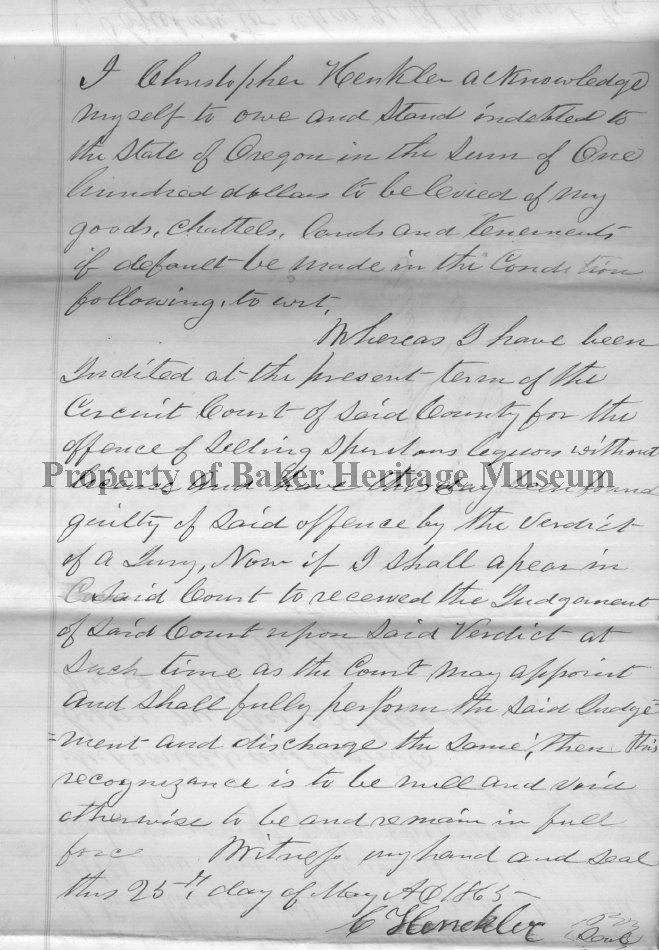 I Christopher Henkler acknowledge
myself to owe and Stand indebted to
the State of Oregon in the Sum of One
hundred dollars to be levied of my
goods, chattels, lands and tenements
if default be made in the Condition
following, to wit,
Whereas I have been
Indited at the present term of the
Circuit Court of Said County for the
offence of Selling Spiritous liquors without
Property of Baker Heritage Museum
and have this day been found
guilty of Said offence by the Verdict
of a Jury, Now if I Shall apear in
Said Court to received the Judgament
of Said Court upon Said Verdict at
Such time as the Court may appoint
and Shall fully perform the Said Judge=
=ment and discharge the Same, then this
recognizance is to be null and void
otherwise to be and remain in full
force Witness my hand and Seal
this 25th day of May AD 1865
C Henckler Seal